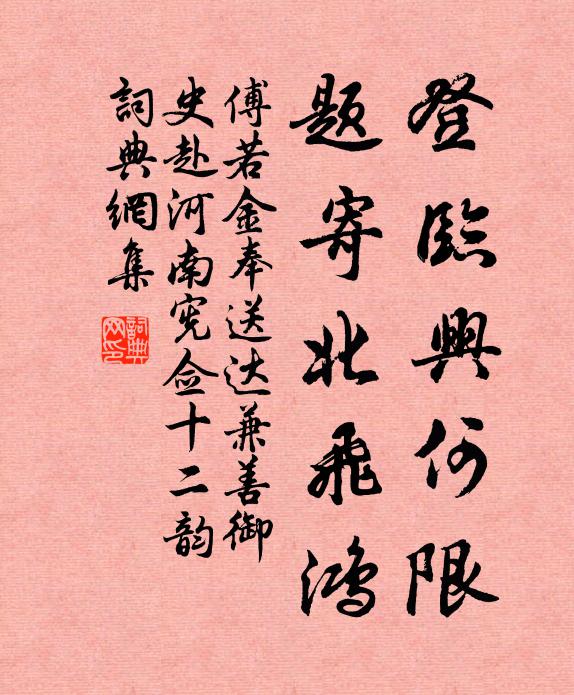 登臨興何限
题寄北飛鴻
傅若金奉送达兼善御
史赴河南宪佥十二韵
詞典網集
詞典网印